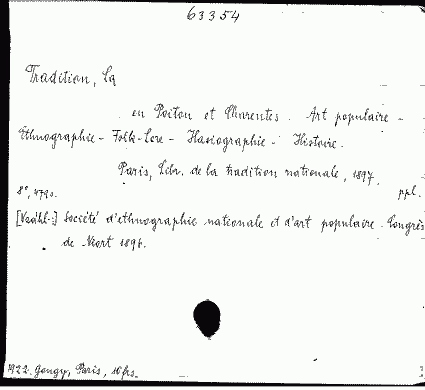 63354
Tradition, La
en Poitou et Charentes. Art populaire -
Ethnographie - Folk-Lore - Hagiographie - Histoire.
Paris, Libr. de la tradition nationale, 1897.
8°, 479 s. ppl.
Société d'ethnographie nationale et d'art populaire. Congrès
de Niort 1896.
1922. Gougy, Paris, 16 frs.